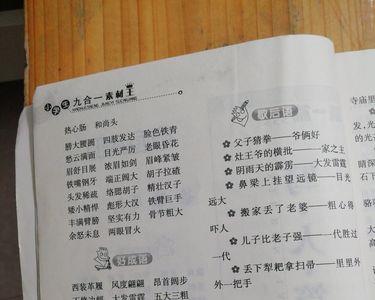 小学生九合一素材王
热心肠 和尚头
膀大腰圆 四肢发达 脸色铁青
愁云满面 目光严厉 老眼昏花
眉舒目展 浓眉如剑 眉峰紧皱
铁嘴钢牙 端正阔大 胡子拉碴
头发稀疏 络腮胡子 精壮汉子
矮小精悍 彪形大汉 铁臂巨手
丰满臂膀 坚实有力 骨节粗大
余怒未息 两眼冒火
好成语
西装革履 风度翩翩 昂首阔步
大发雷霆 五大三粗
歇后语
父子猜拳——爷俩好
灶王爷的横批——一家之主
阴雨天的霹雳——大发雷霆
鼻梁上挂望远镜——目光
远大
搬家丢了老婆——粗心得
吓人
儿子比老子强——一代胜过
一代
丢下犁耙拿扫帚——里里外
一把手
寺庙里